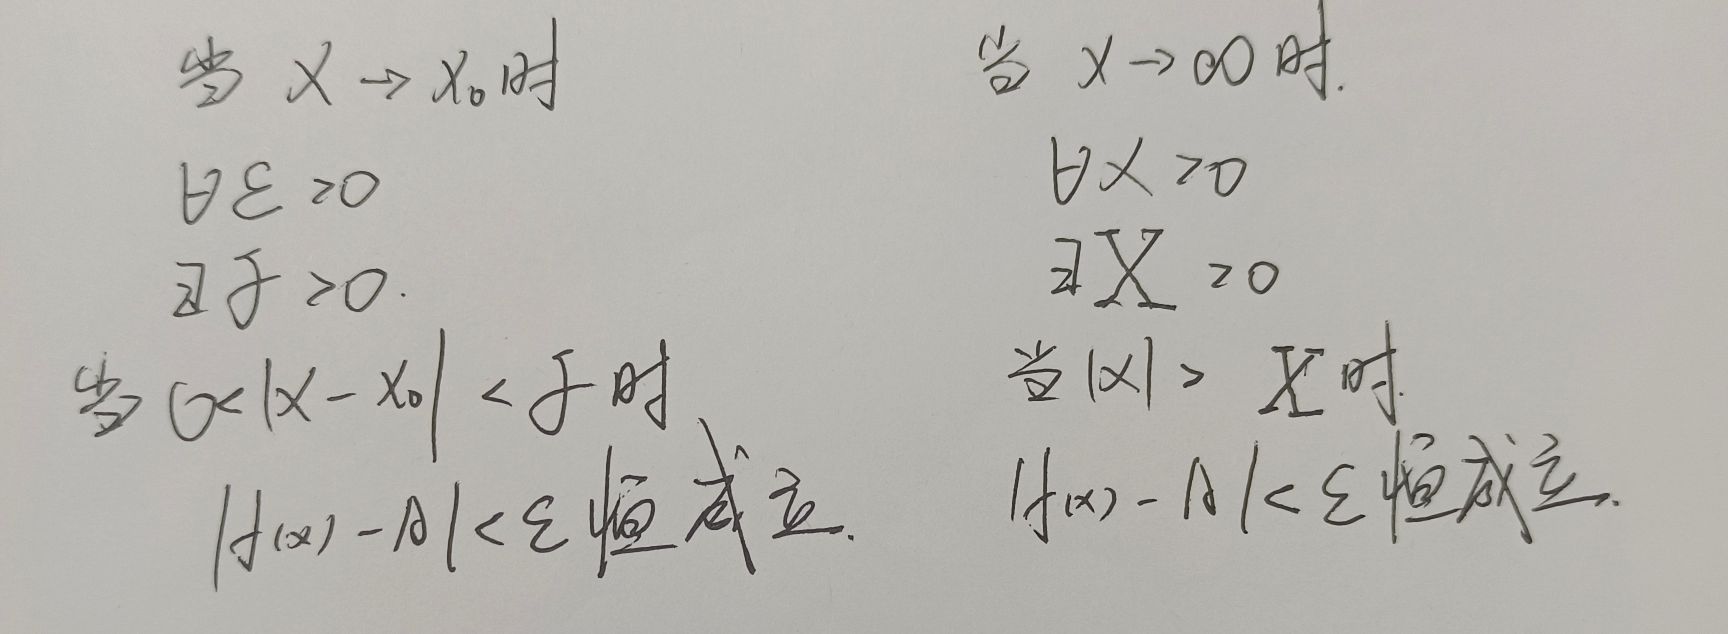 当 x → x₀ 时
∀ε >0
∃δ >0.
当 0<|x - x₀| < δ 时
|f(x) - A| < ε 恒成立.
当 x → ∞ 时.
∀x >0
∃X >0
当 |x| > X 时.
|f(x) - A| < ε 恒成立.